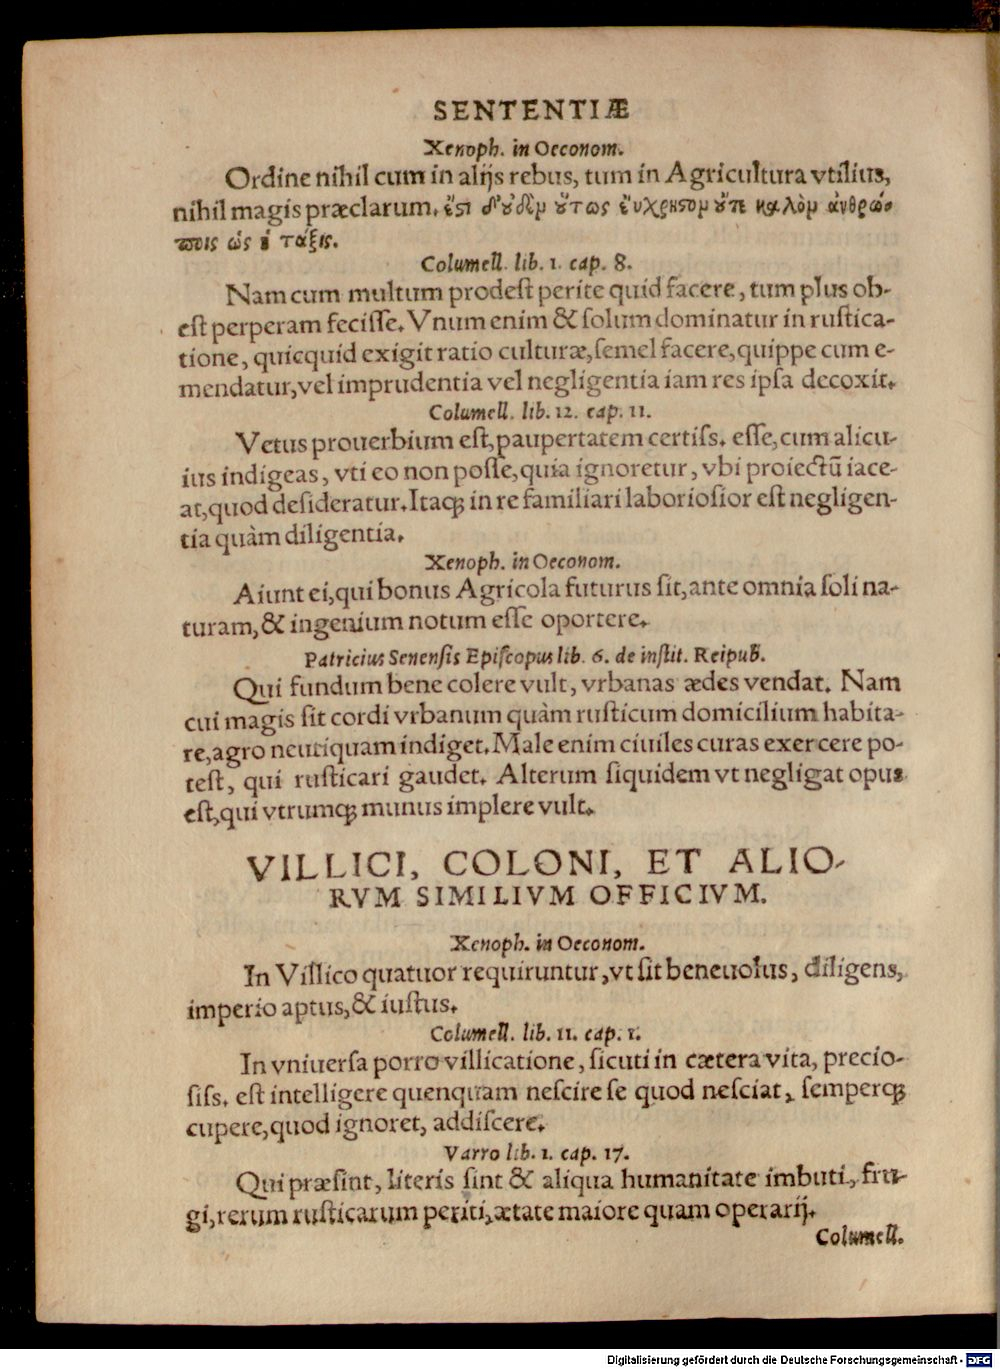 SENTENTIÆ
Xenoph. in Oeconom.
Ordine nihil cum in alijs rebus, tum in Agricultura vtilius,
nihil magis præclarum. ἔστι δ' οὐδὲν οὕτως εὔχρηστον οὔτε καλὸν ἀνθρώ-
ποις ὡς ἡ τάξις.
Columell. lib. 1. cap. 8.
Nam cum multum prodest perite quid facere, tum plus ob-
est perperam fecisse. Vnum enim & solum dominatur in rustica-
tione, quicquid exigit ratio culturæ, semel facere, quippe cum e-
mendatur, vel imprudentia vel negligentia iam res ipsa decoxit.
Columell. lib. 12. cap. 11.
Vetus prouerbium est, paupertatem certiss. esse, cum alicu-
ius indigeas, vti eo non posse, quia ignoretur, vbi proiectū iace-
at, quod desideratur. Itaq; in re familiari laboriosior est negligen-
tia quàm diligentia.
Xenoph. in Oeconom.
Aiunt ei, qui bonus Agricola futurus sit, ante omnia soli na-
turam, & ingenium notum esse oportere.
Patricius Senensis Episcopus lib. 6. de instit. Reipub.
Qui fundum bene colere vult, vrbanas ædes vendat. Nam
cui magis sit cordi vrbanum quàm rusticum domicilium habita-
re, agro neutiquam indiget. Male enim ciuiles curas exercere po-
test, qui rusticari gaudet. Alterum siquidem vt negligat opus
est, qui vtrumq; munus implere vult.
VILLICI, COLONI, ET ALIO-
RVM SIMILIVM OFFICIVM.
Xenoph. in Oeconom.
In Villico quatuor requiruntur, vt sit beneuolus, diligens,
imperio aptus, & iustus.
Columell. lib. 11. cap. 1.
In vniuersa porro villicatione, sicuti in cætera vita, precio-
siss. est intelligere quenquam nescire se quod nesciat, semperq;
cupere, quod ignoret, addiscere.
Varro lib. 1. cap. 17.
Qui præsint, literis sint & aliqua humanitate imbuti, fru-
gi, rerum rusticarum periti, ætate maiore quam operarij.
Columell.
Digitalisierung gefördert durch die Deutsche Forschungsgemeinschaft - DFG